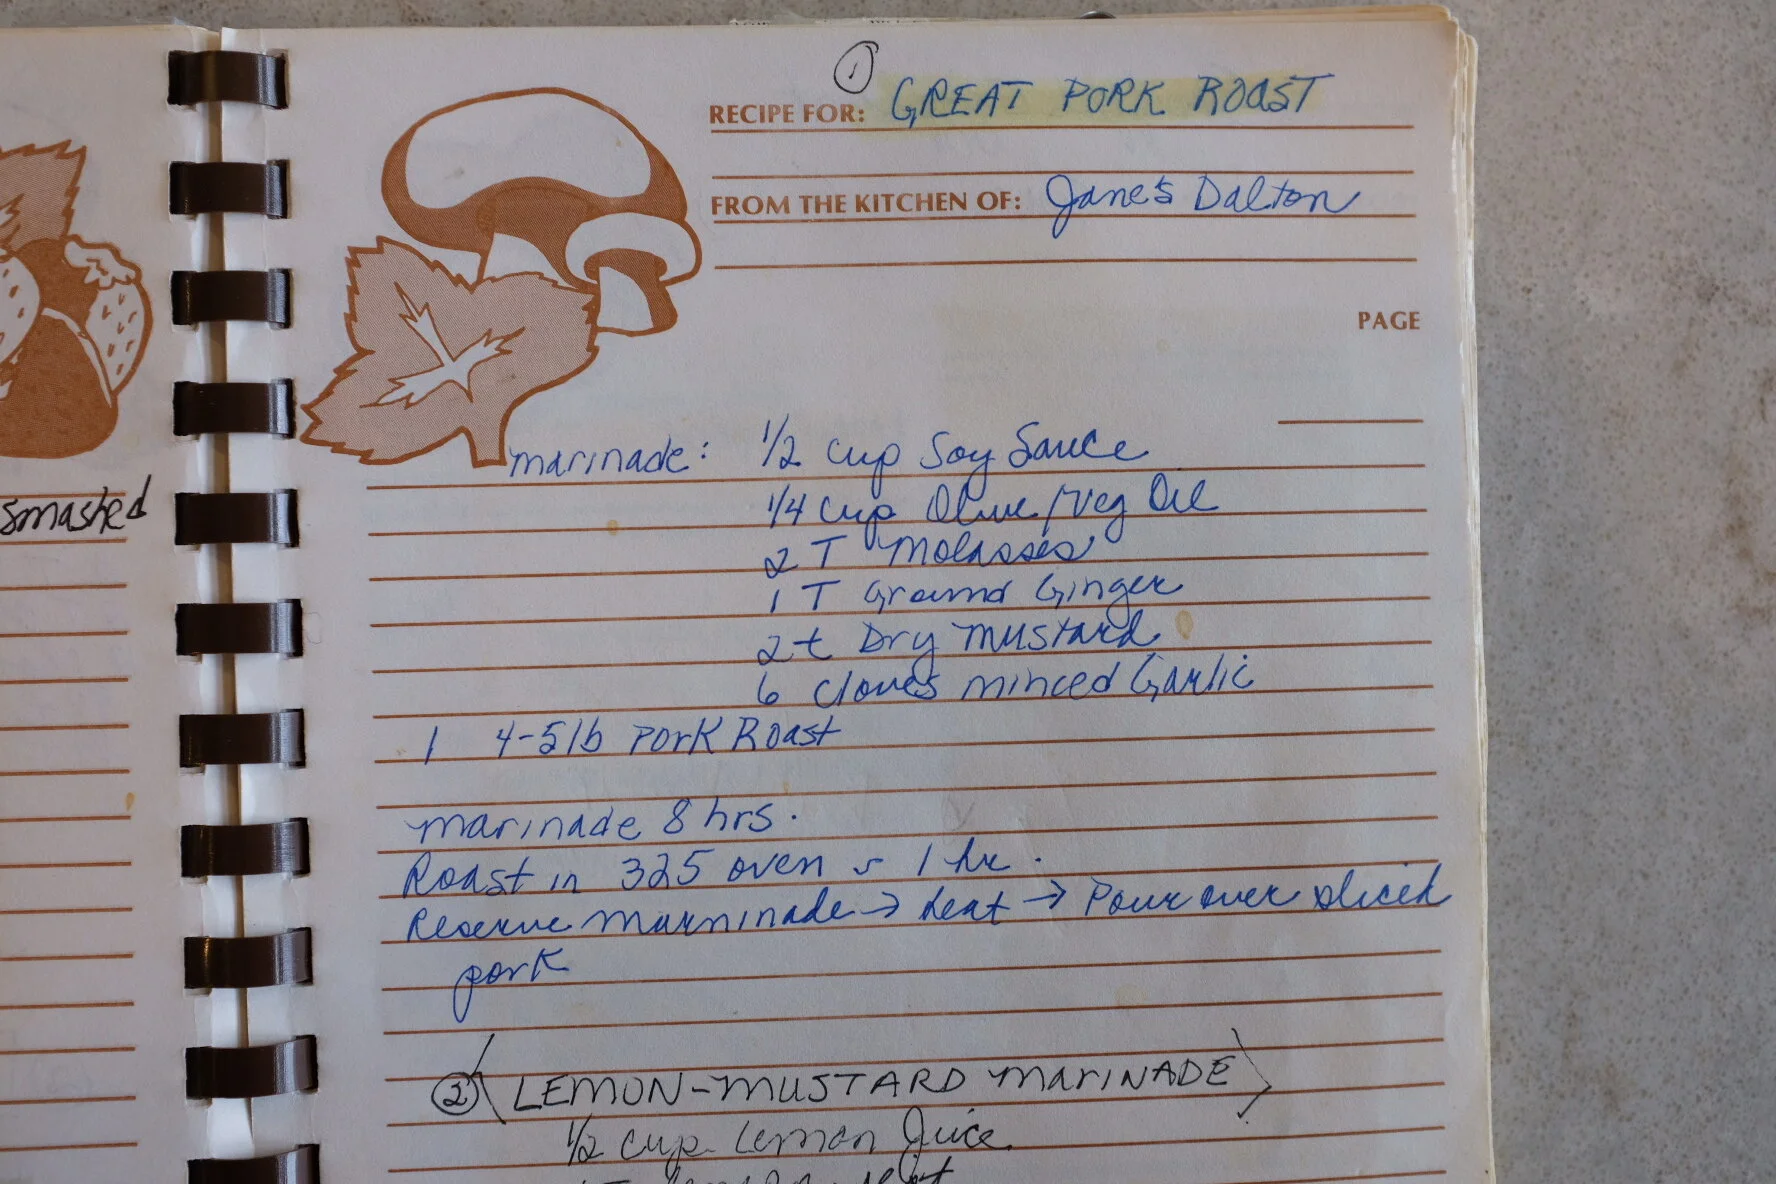 smashed
①
RECIPE FOR: GREAT PORK ROAST
FROM THE KITCHEN OF: Jane's Dalton
PAGE
marinade: 1/2 cup Soy Sauce
1/4 cup Olive/Veg Oil
2 T Molasses
1 T Ground Ginger
2 t Dry Mustard
6 cloves minced Garlic
1 4-5 lb Pork Roast
marinade 8 hrs.
Roast in 325 oven 1 hr.
Reserve marninade → heat → Pour over sliced
pork
② LEMON-MUSTARD MARINADE
1/2 cup Lemon Juice